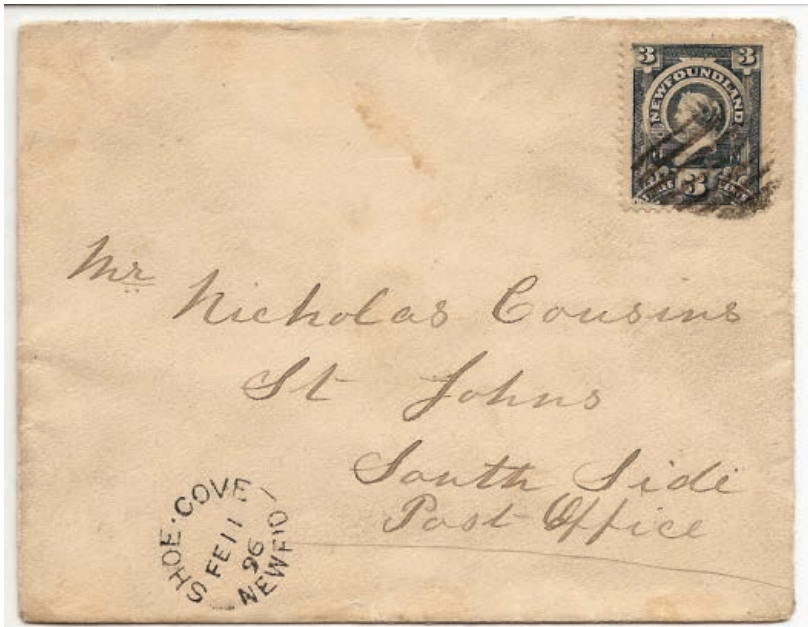 3 3
NEWFOUNDLAND
3
Mr
Nicholas Cousins
St Johns
South Side
Post Office
SHOE·COVE
FE 11
96
NEWFD